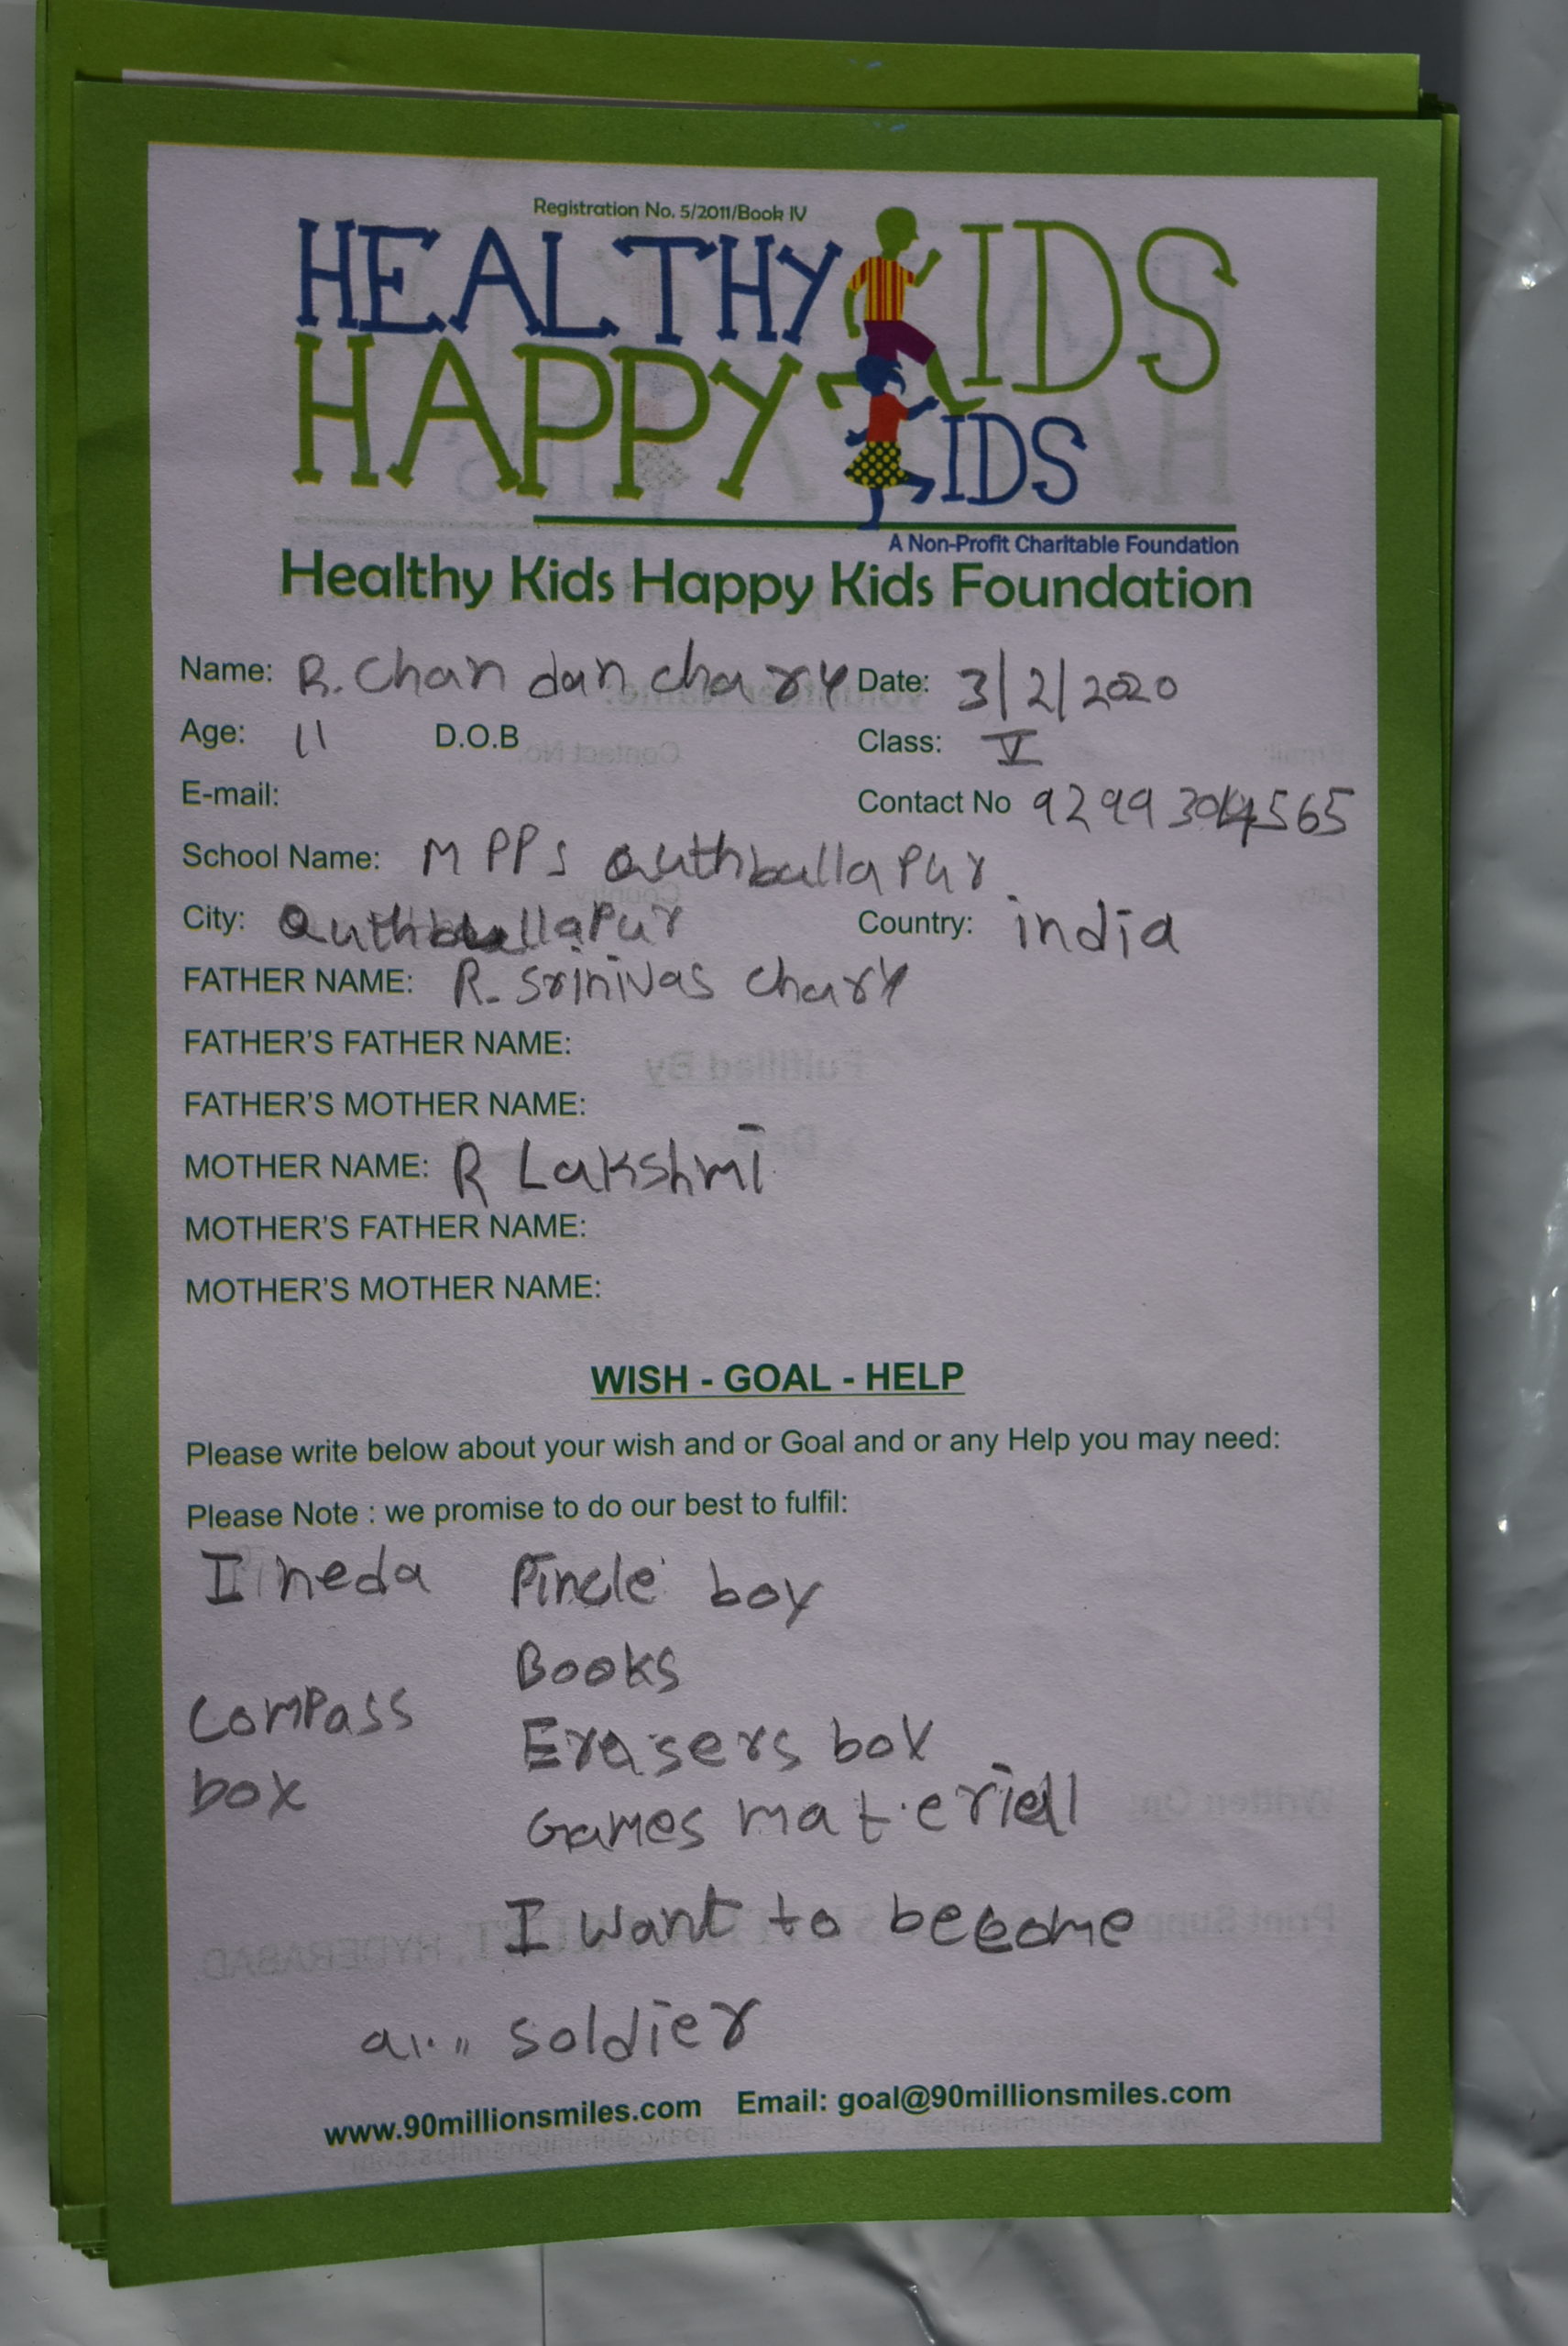 Registration No. 5/2011/Book IV
HEALTHY KIDS
HAPPY KIDS
A Non-Profit Charitable Foundation
Healthy Kids Happy Kids Foundation
Name: R. Chandan chary Date: 3/2/2020
Age: 11 D.O.B Class: V
E-mail: Contact No
School Name: MPPS Quthbullapur
City: Quthbullapur Country: india
FATHER NAME: R. Srinivas chary
FATHER'S FATHER NAME:
FATHER'S MOTHER NAME:
MOTHER NAME: R Lakshmi
MOTHER'S FATHER NAME:
MOTHER'S MOTHER NAME:
WISH - GOAL - HELP
Please write below about your wish and or Goal and or any Help you may need:
Please Note : we promise to do our best to fulfil:
I neda Pincle box
Books
Compass
Erasers box
box
Games material
I want to become
soldier
www.90millionsmiles.com Email: goal@90millionsmiles.com